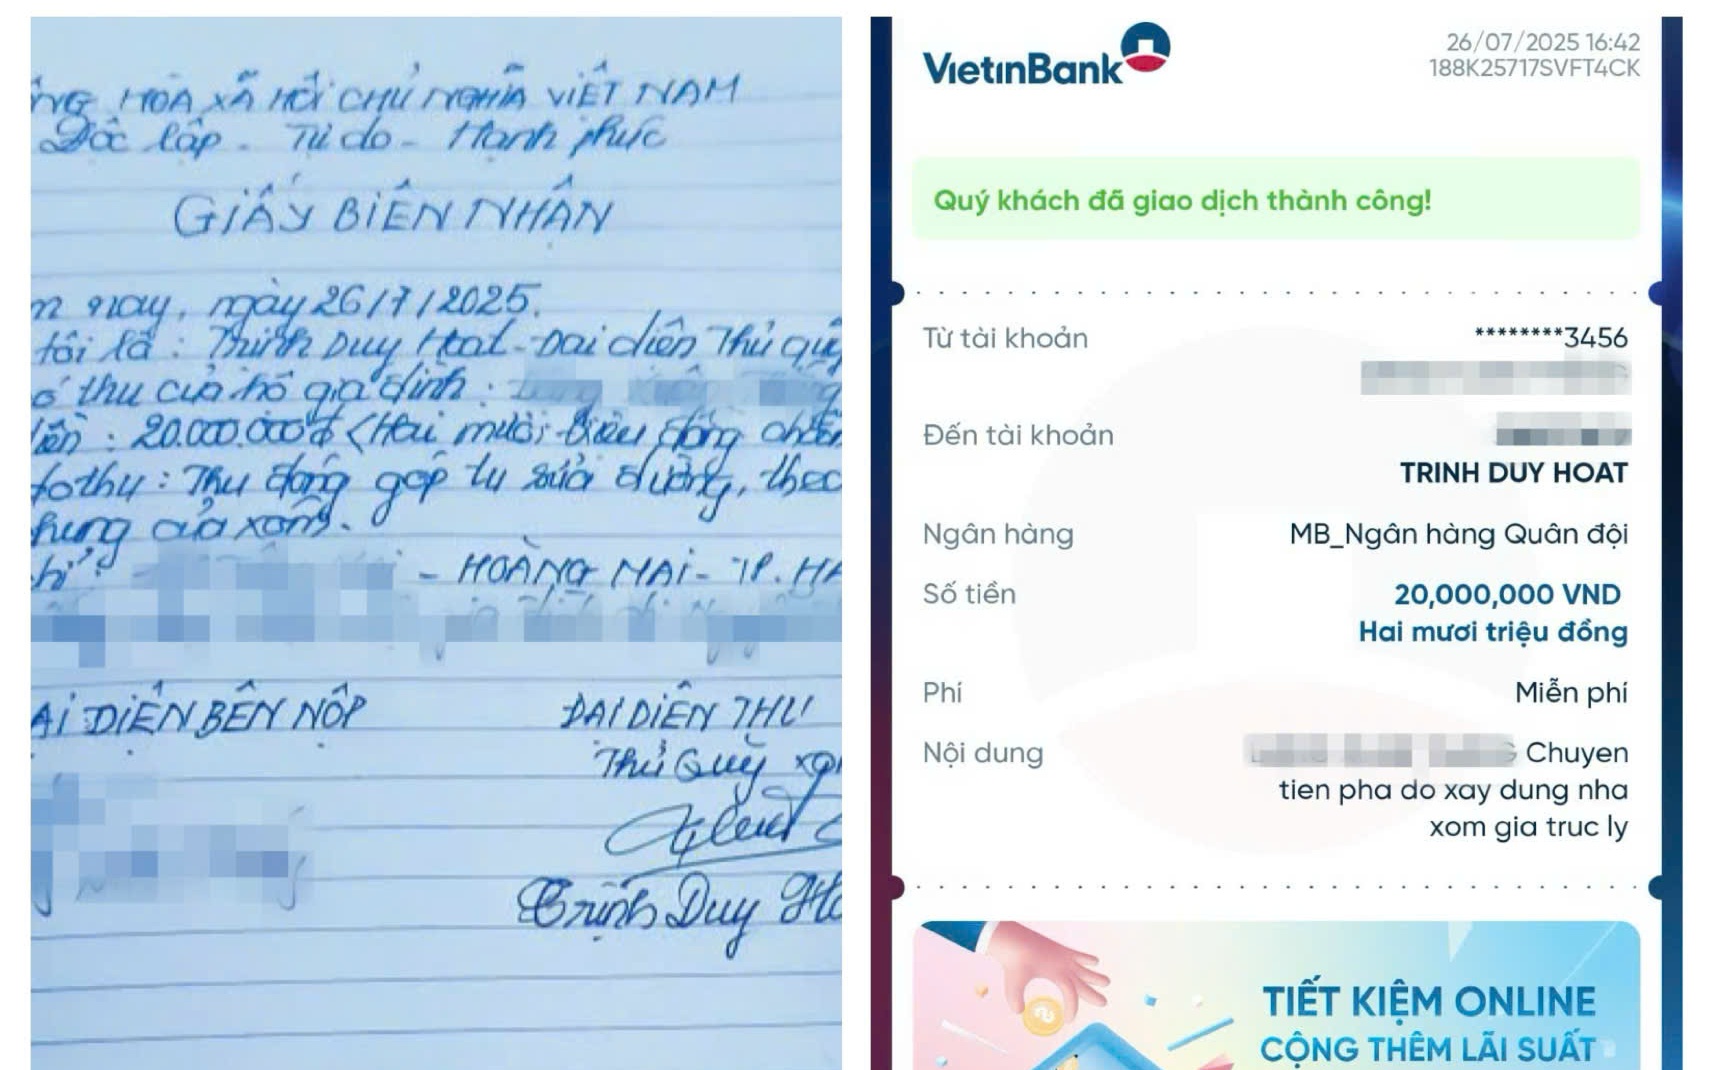 NG HÒA XÃ HỘI CHỦ NGHĨA VIỆT NAM
Độc lập - Tự do - Hạnh phúc
GIẤY BIÊN NHẬN
nay, ngày 26/7/2025.
tôi là : Trịnh Duy Hoạt - Đại diện Thủ quỹ
thu của hộ gia đình :
20.000.000đ (Hai mười triệu đồng chẵn
Thu đóng góp tu sửa đường, theo
của xóm.
- HOÀNG MAI - TP. HÀ
DIỆN BÊN NỘP
ĐẠI DIỆN THU
Thủ Quỹ
Trịnh Duy
VietinBank
26/07/2025 16:42
188K25717SVFT4CK
Quý khách đã giao dịch thành công!
Từ tài khoản
********3456
Đến tài khoản
TRINH DUY HOAT
Ngân hàng
MB_Ngân hàng Quân đội
Số tiền
20,000,000 VND
Hai mươi triệu đồng
Phí
Miễn phí
Nội dung
Chuyen
tien pha do xay dung nha
xom gia truc ly
TIẾT KIỆM ONLINE
CỘNG THÊM LÃI SUẤT